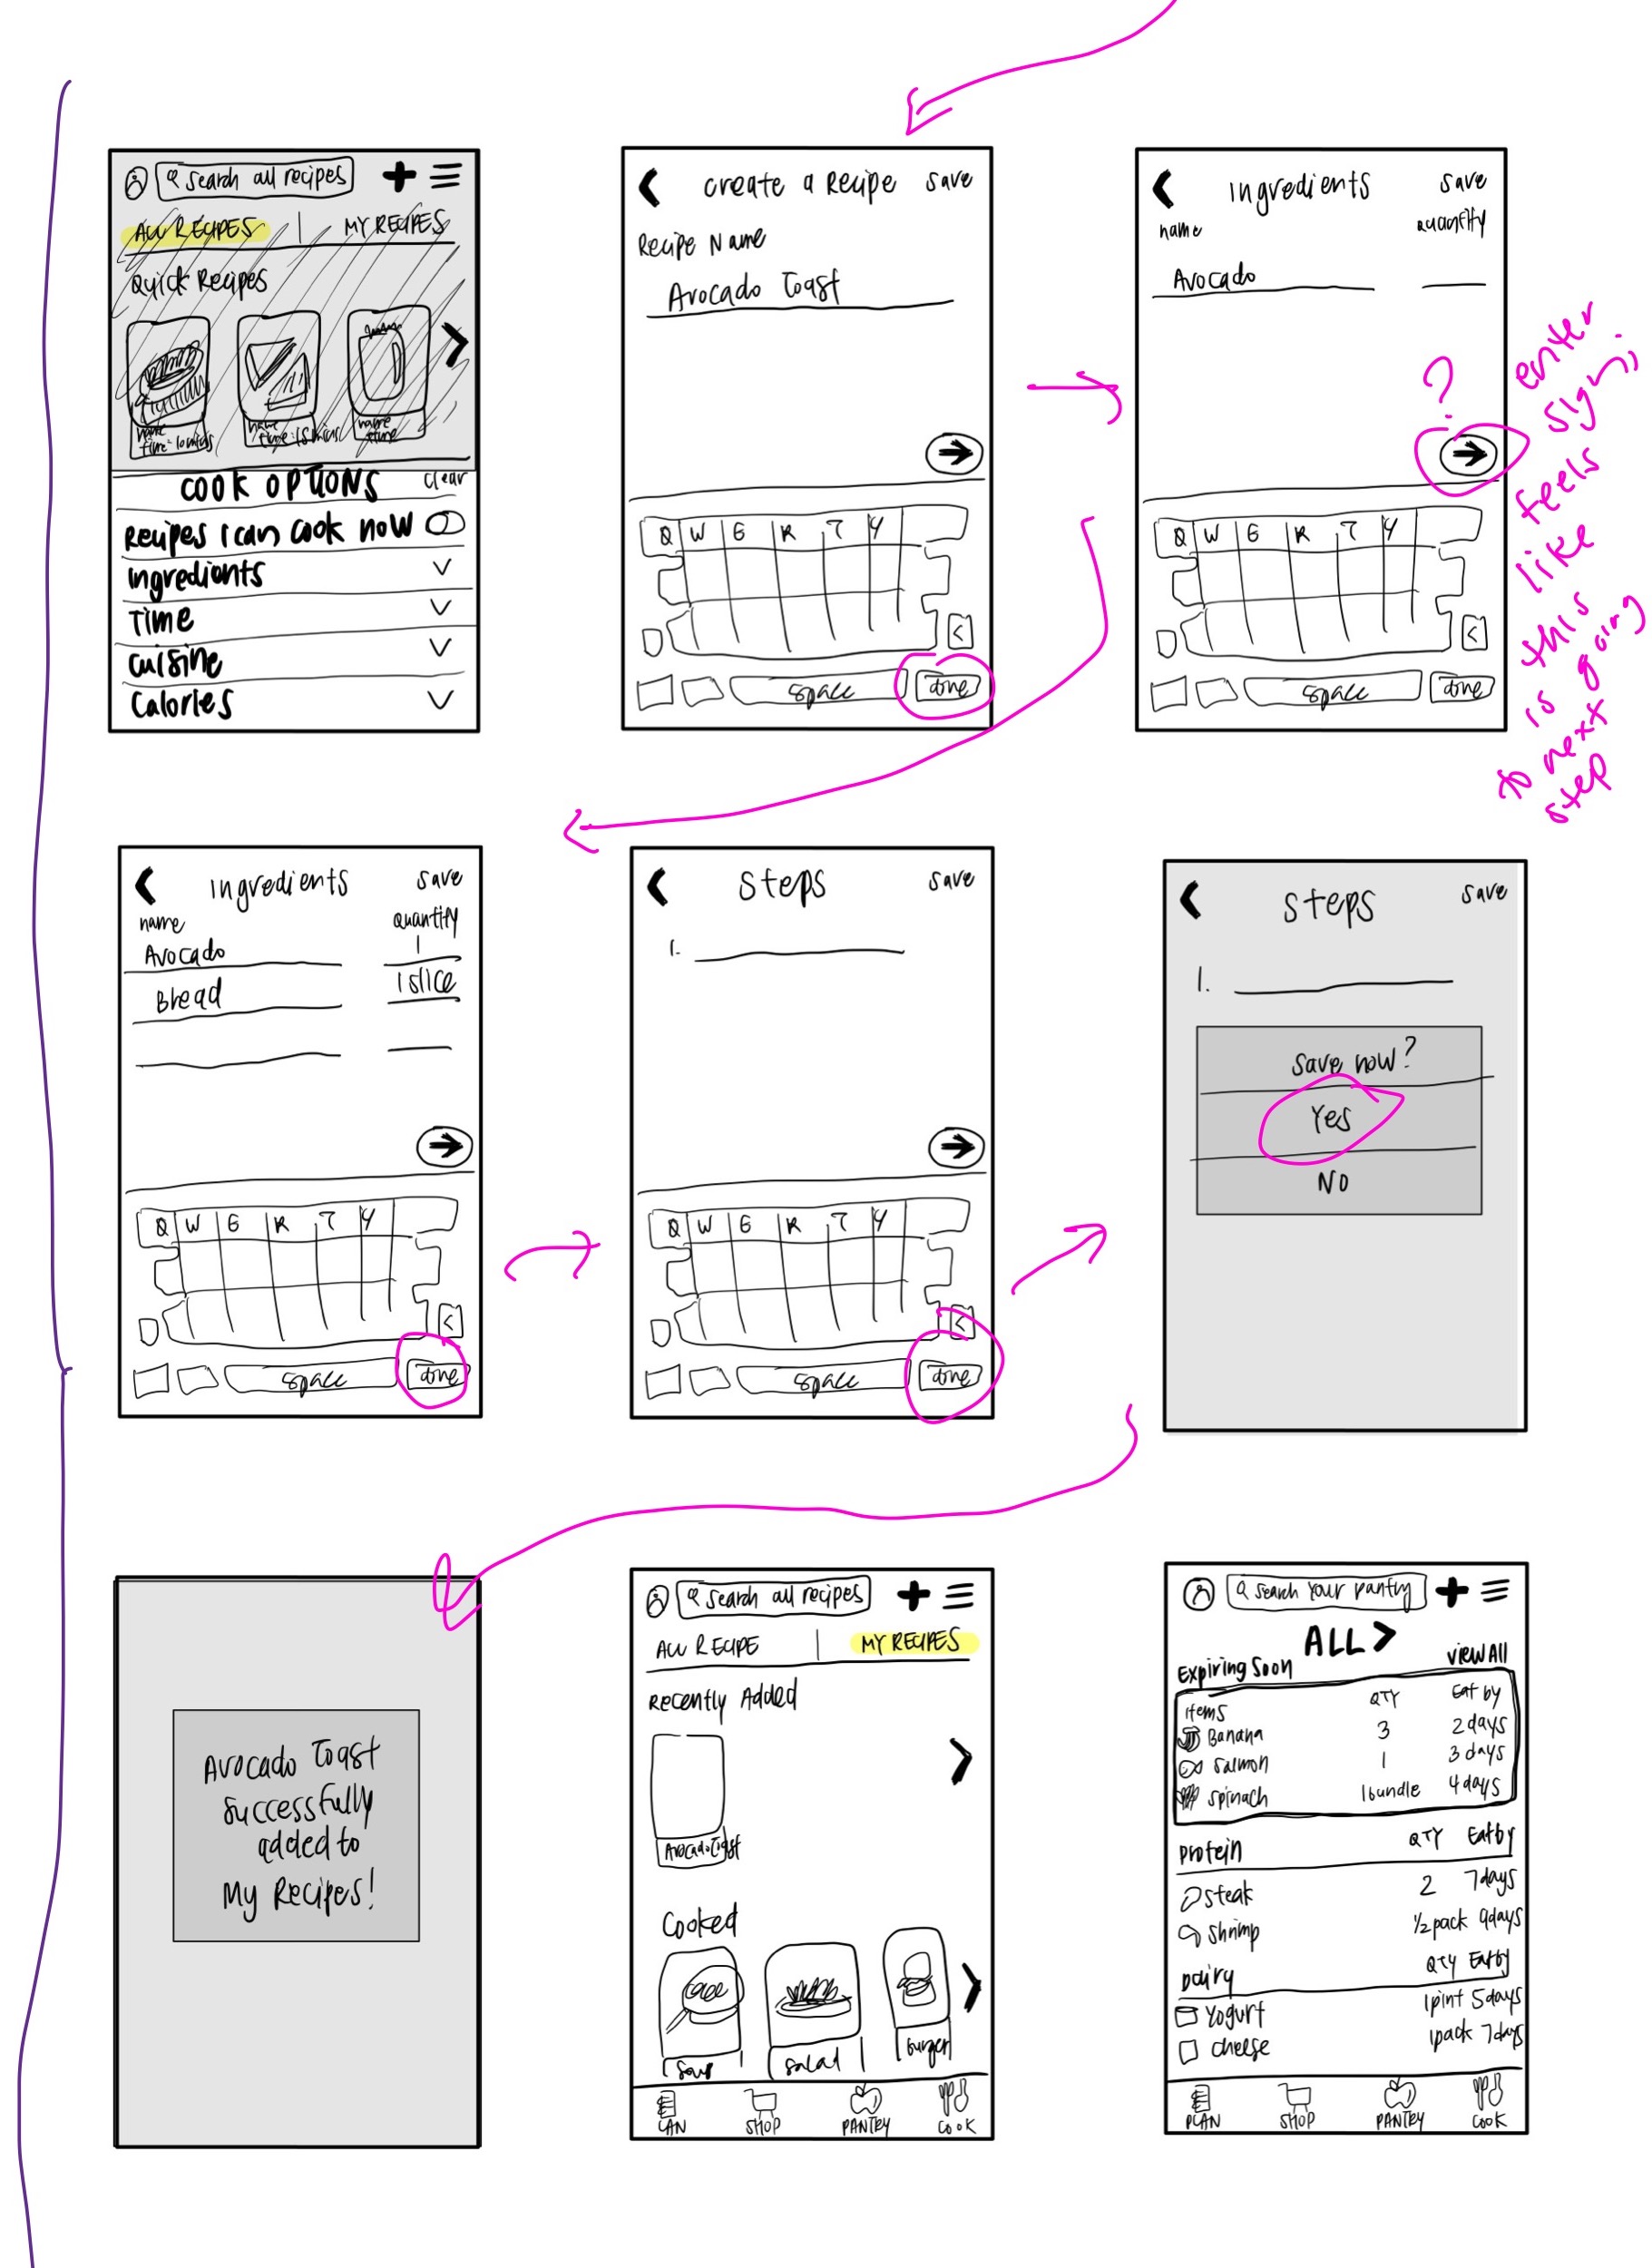 search all recipes
ALL RECIPES | MY RECIPES
Quick Recipes
name
time: 10 mins
name
time: 15 mins
name
time
COOK OPTIONS clear
Recipes I can cook now
Ingredients
Time
Cuisine
Calories
Create a Recipe save
Recipe Name
Avocado Toast
Q W E R T Y
space done
Ingredients save
name Quantity
Avocado
Q W E R T Y
space done
?
enter
sign;
feels
like
this
is going
to next
step
Ingredients save
name Quantity
Avocado 1
Bread 1 slice
Q W E R T Y
space done
Steps save
1.
Q W E R T Y
space done
Steps save
1.
Save now?
Yes
No
Avocado Toast
successfully
added to
My Recipes!
search all recipes
ALL RECIPE | MY RECIPES
Recently Added
Avocado Toast
Cooked
Soup Salad Burger
PLAN SHOP PANTRY COOK
search your pantry
ALL >
Expiring Soon View All
items QTY Eat by
Banana 3 2 days
Salmon 1 3 days
Spinach 1 bundle 4 days
Protein QTY Eat by
Steak 2 7 days
Shrimp 1/2 pack 9 days
Dairy QTY Eat by
Yogurt 1 pint 5 days
cheese 1 pack 7 days
PLAN SHOP PANTRY COOK